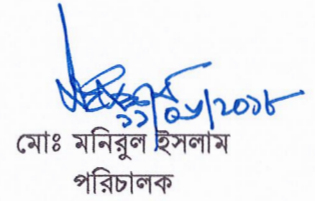 ১১/০৮/২০১৮
মোঃ মনিরুল ইসলাম
পরিচালক